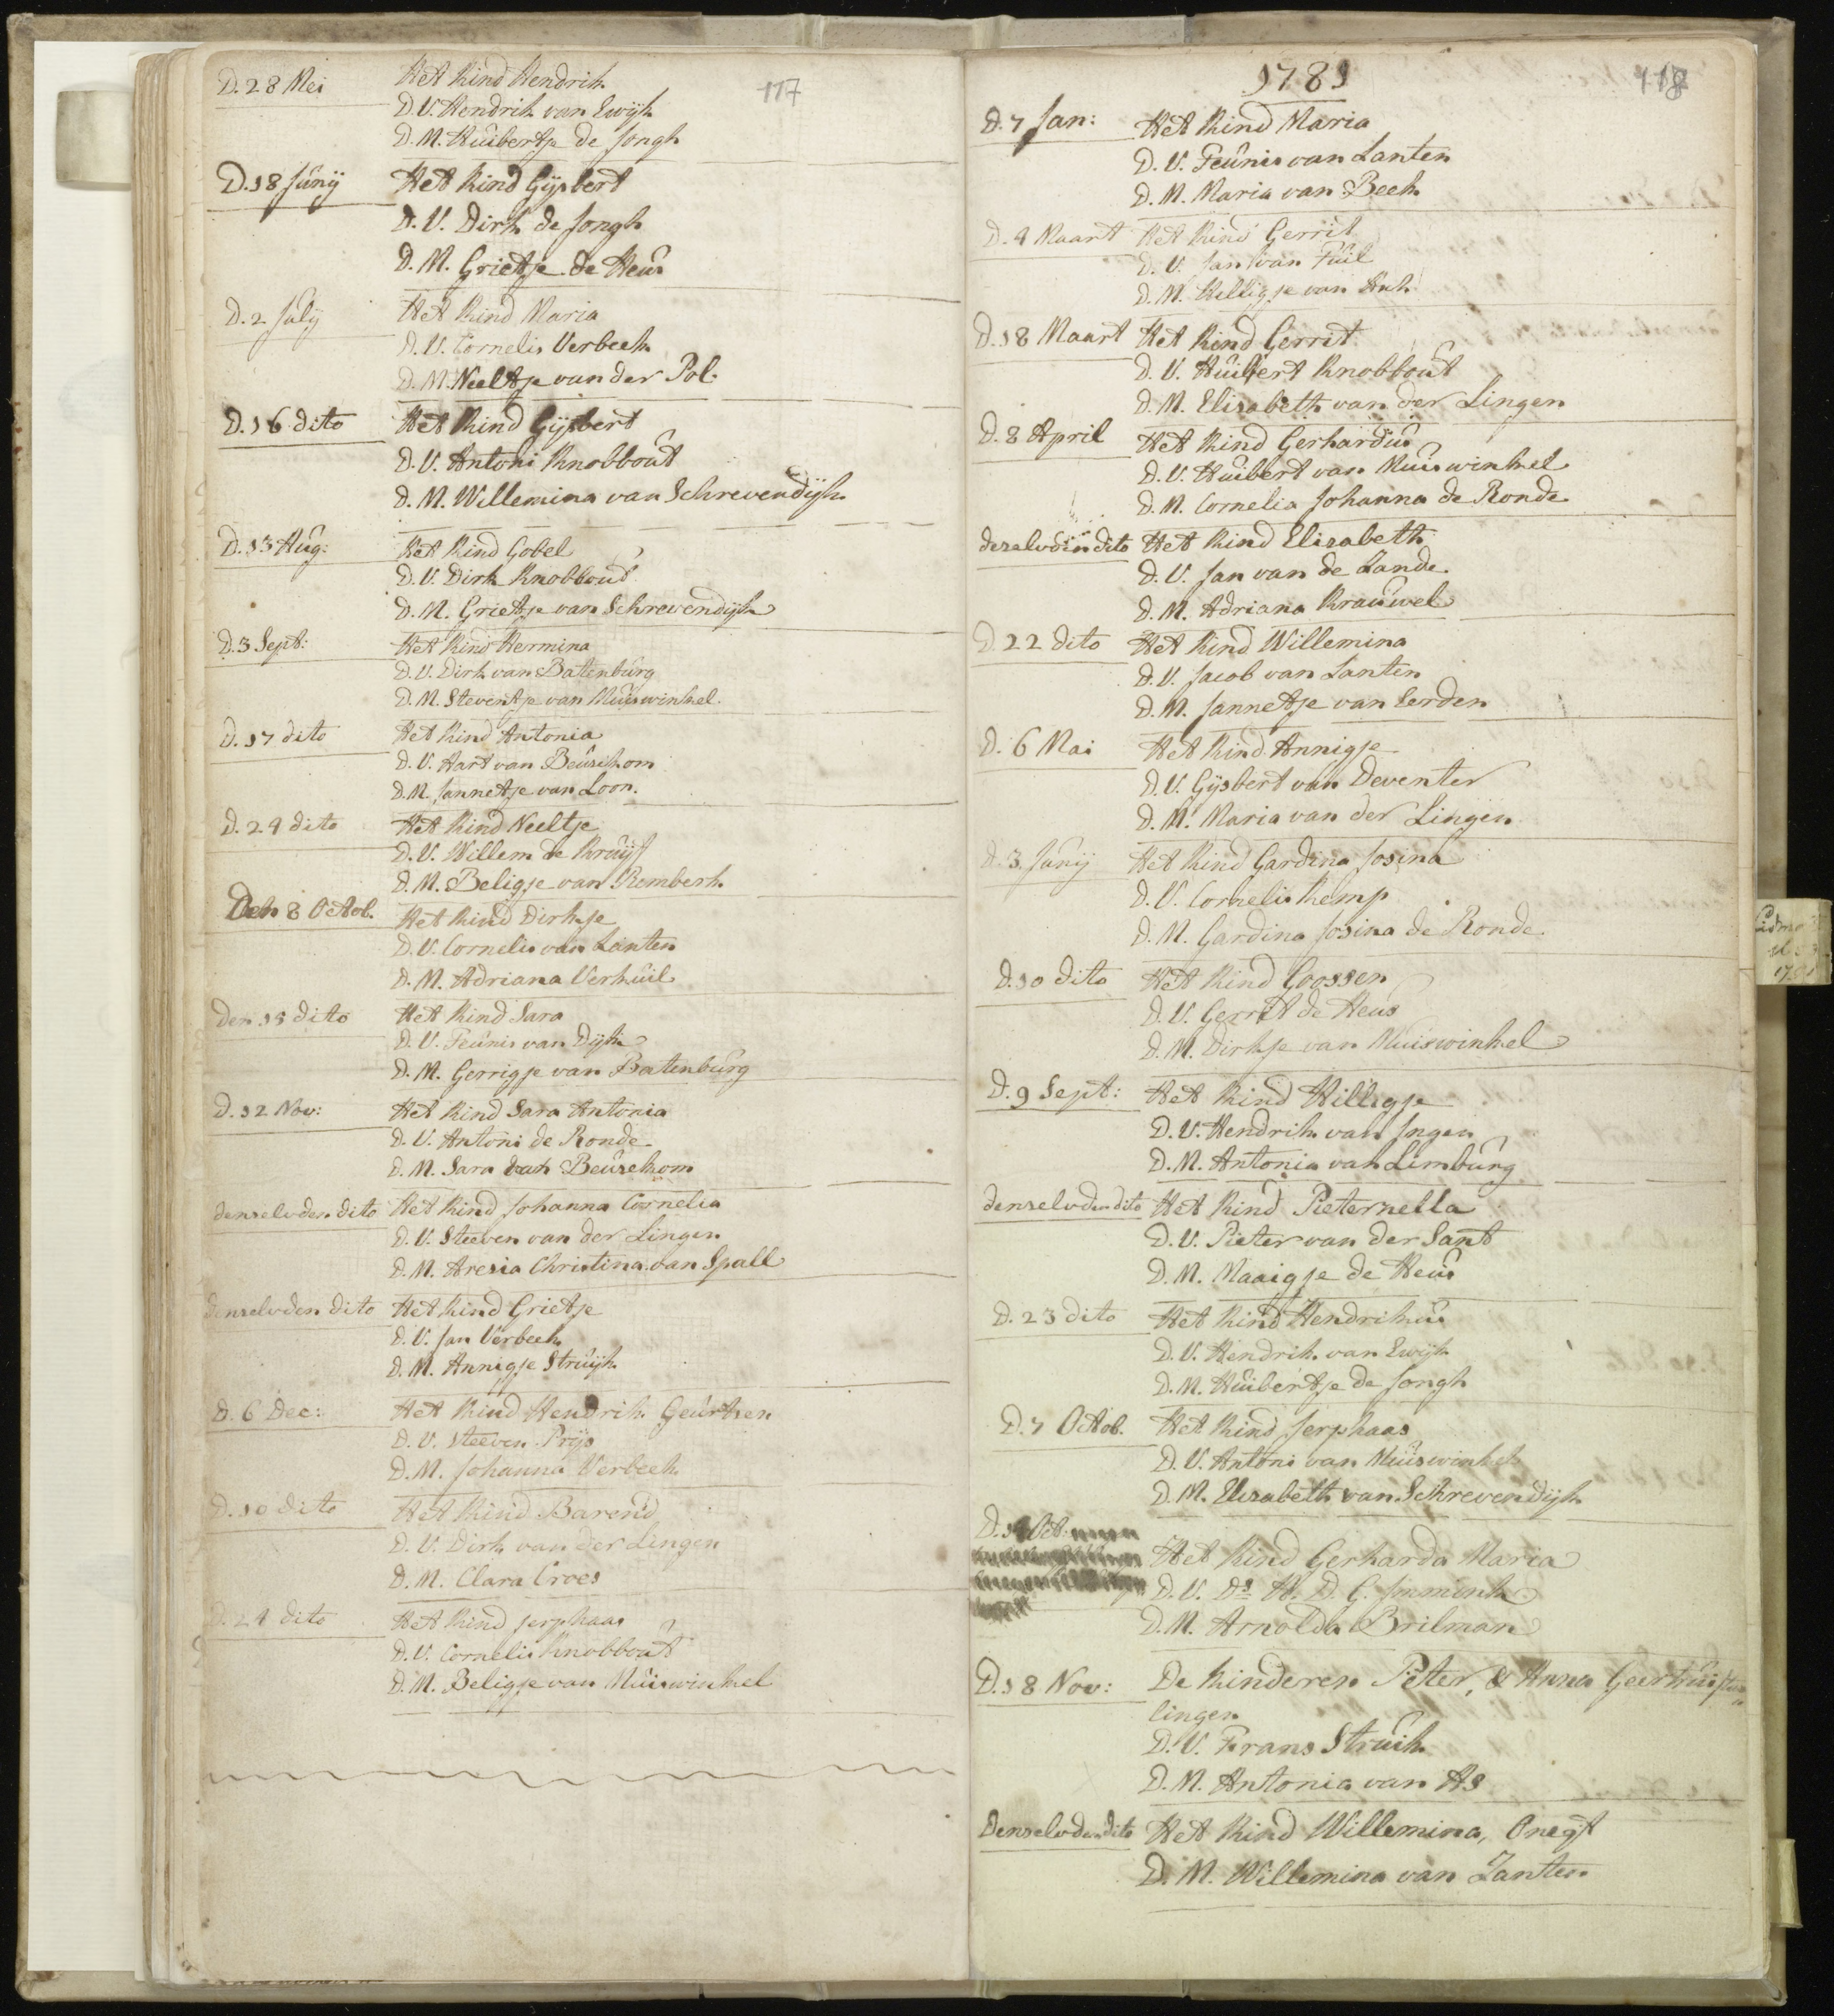 117
D. 28 Mei Het Kind Hendrik
D.V. Hendrik van Ewijk
D.M. Huibertje de Jongh
D. 18 Junij Het Kind Gijsbert
D.V. Dirk de Jongh
D.M. Grietje de Heus
D. 2 Julij Het Kind Maria
D.V. Cornelis Verbeek
D.M. Neeltje van der Pol.
D. 16 dito Het Kind Gijsbert
D.V. Antoni Knobbout
D.M. Willemina van Schrevendijk
D. 13 Aug: Het Kind Gobel
D.V. Dirk Knobbout
D.M. Grietje van Schrevendijk
D. 3 Sept: Het Kind Hermina
D.V. Dirk van Batenburg
D.M. Steventje van Muiswinkel.
D. 17 dito Het Kind Antonia
D.V. Aart van Beusichom
D.M. Jannetje van Loon.
D. 24 dito Het Kind Neeltje
D.V. Willem de Kruijf
D.M. Beligje van Remberk.
Den 8 Octob. Het Kind Dirkje
D.V. Cornelis van Santen
D.M. Adriana Verhuil
Den 15 dito Het Kind Sara
D.V. Teunis van Dijk
D.M. Gerrigje van Batenburg
D. 12 Nov: Het Kind Sara Antonia
D.V. Antoni de Ronde
D.M. Sara van Beusekom
denselvden dito Het Kind Johanna Cornelia
D.V. Steeven van der Lingen
D.M. Aresia Christina van Spall
denselvden dito Het Kind Grietje
D.V. Jan Verbeek
D.M. Annigje Struijk
D. 6 Dec: Het Kind Hendrik Geurtsen
D.V. Steeven Prijs
D.M. Johanna Verbeek
D. 10 dito Het Kind Barend
D.V. Dirk van der Lingen
D.M. Clara Croes
D. 24 dito Het Kind Jerphaas
D.V. Cornelis Knobbout
D.M. Beligje van Muiswinkel
1781
118
D. 7 Jan: Het Kind Maria
D.V. Teunis van Santen
D.M. Maria van Beek
D. 4 Maart Het Kind Gerrit
D.V. Jan van Tuil
D.M. Willigje van
D. 18 Maart Het Kind Gerrit
D.V. Huibert Knobbout
D.M. Elisabeth van der Lingen
D. 8 April Het Kind Gerhardus
D.V. Huibert van Muiswinkel
D.M. Cornelia Johanna de Ronde
dito Het Kind Elisabeth
D.V. Jan van de Zande
D.M. Adriana Krauwel
D. 22 dito Het Kind Willemina
D.V. Jacob van Santen
D.M. Jannetje van Eerden
D. 6 Mai Het Kind Annigje
D.V. Gijsbert van Deventer
D.M. Maria van der Lingen
D. 3 Junij Het Kind Gardina Josina
D.V. Cornelis Kemp
D.M. Gardina Josina de Ronde
D. 10 dito Het Kind Goossen
D.V. Gerrit de Heus
D.M. Dirkje van Muiswinkel
D. 9 Sept: Het Kind Willigje
D.V. Hendrik van Ingen
D.M. Antonia van Limburg
denselvden dito Het Kind Pieternella
D.V. Pieter van der Sant
D.M. Maaigje de Heus
D. 23 dito Het Kind Hendrikus
D.V. Hendrik van Ewijk
D.M. Huibertje de Jongh
D. 7 Octob. Het Kind Jerphaas
D.V. Antoni van Muiswinkel
D.M. Elisabeth van Schrevendijk
D. 14 Oct. Het Kind Gerharda Maria
D.V. Ds H. D. G. Immink
D.M. Arnolda Brilman
D. 18 Nov: De Kinderen Peter, & Anna Geertrui,
lingen
D.V. Frans Struik
D.M. Antonia van As
Denselvden dito Het Kind Willemina, Onegt
D.M. Willemina van Zanten